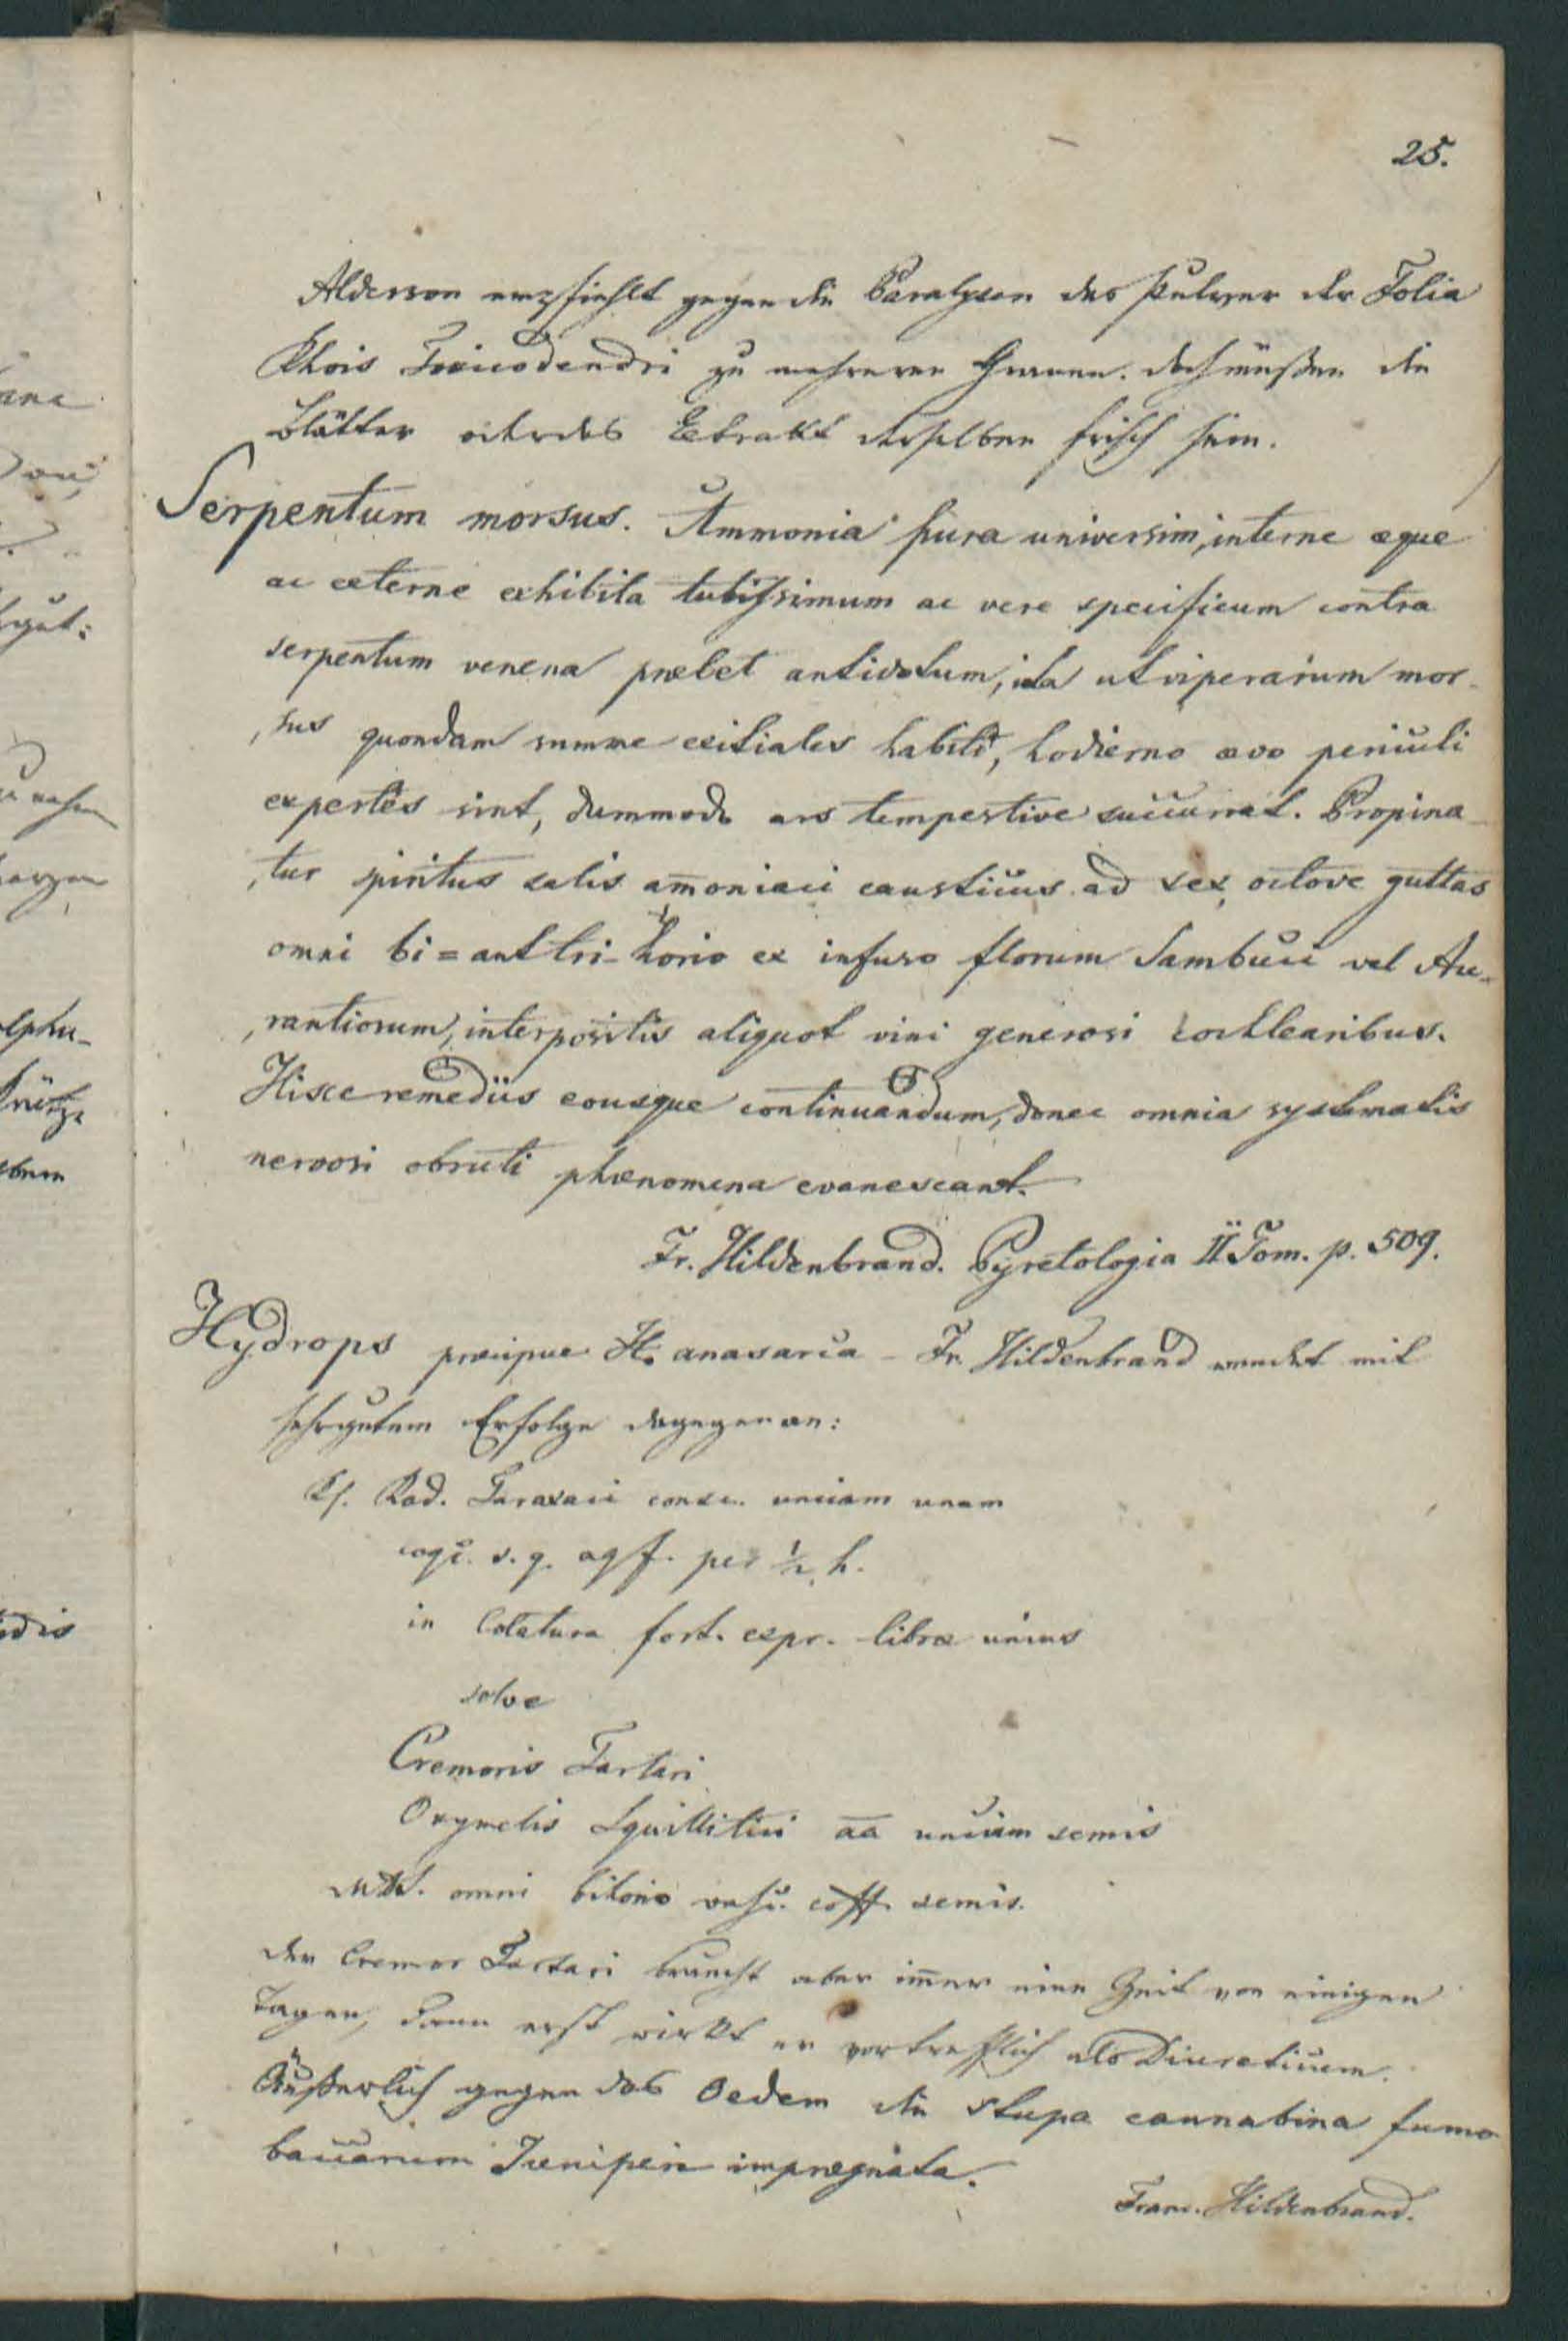 25.
Alderson empfiehlt gegen die Paralysen das Pulver der Folia
Rhois Toxicodendri zu mehreren Granen. doch müßen die
Blätter oder das Extrakt derselben frisch sein.
Serpentum morsus. Ammonia pura universim, interne æque
ac externe exhibita tutissimum ac vere specificum contra
serpentum venena præbet antidotum, ita ut viperarum mor-
sus quondam summe exitiales habiti, hodierno ævo periculi
expertes sint, dummodo ars tempestive succurrat. Propina-
tur spiritus salis amoniaci causticus ad sex, octove guttas
omni bi=aut tri-horio ex infuso florum Sambuci vel Au-
rantiorum, interpositis aliquot vini generosi cochlearibus.
Hisce remediis eousque continuandum, donec omnia systematis
nervosi obruti phænomena evanescant.
Fr. Hildenbrand. Pyretologia II Tom. p. 509.
Hydrops præcipue H. anasarca - Fr. Hildenbrand wendet mit
sehr gutem Erfolge dagegen an:
Rp. Rad. Taraxaci consc. unciam unam
coq. s. q. aq f. per ½ h.
in Colatura fort. expr. libræ unius
solve
Cremoris Tartari
Oxymelis Squillitici aa unciam semis
MDS. omni bihorio vasc. coff. semis.
der Cremor Tartari braucht aber imer eine Zeit von einigen
Tagen, dann erst wirkt er vortrefflich als Diureticum.
Äußerlich gegen das Oedem die stupa cannabina fumo
baccarum Juniperi imprægnata.
Franc. Hildenbrand.